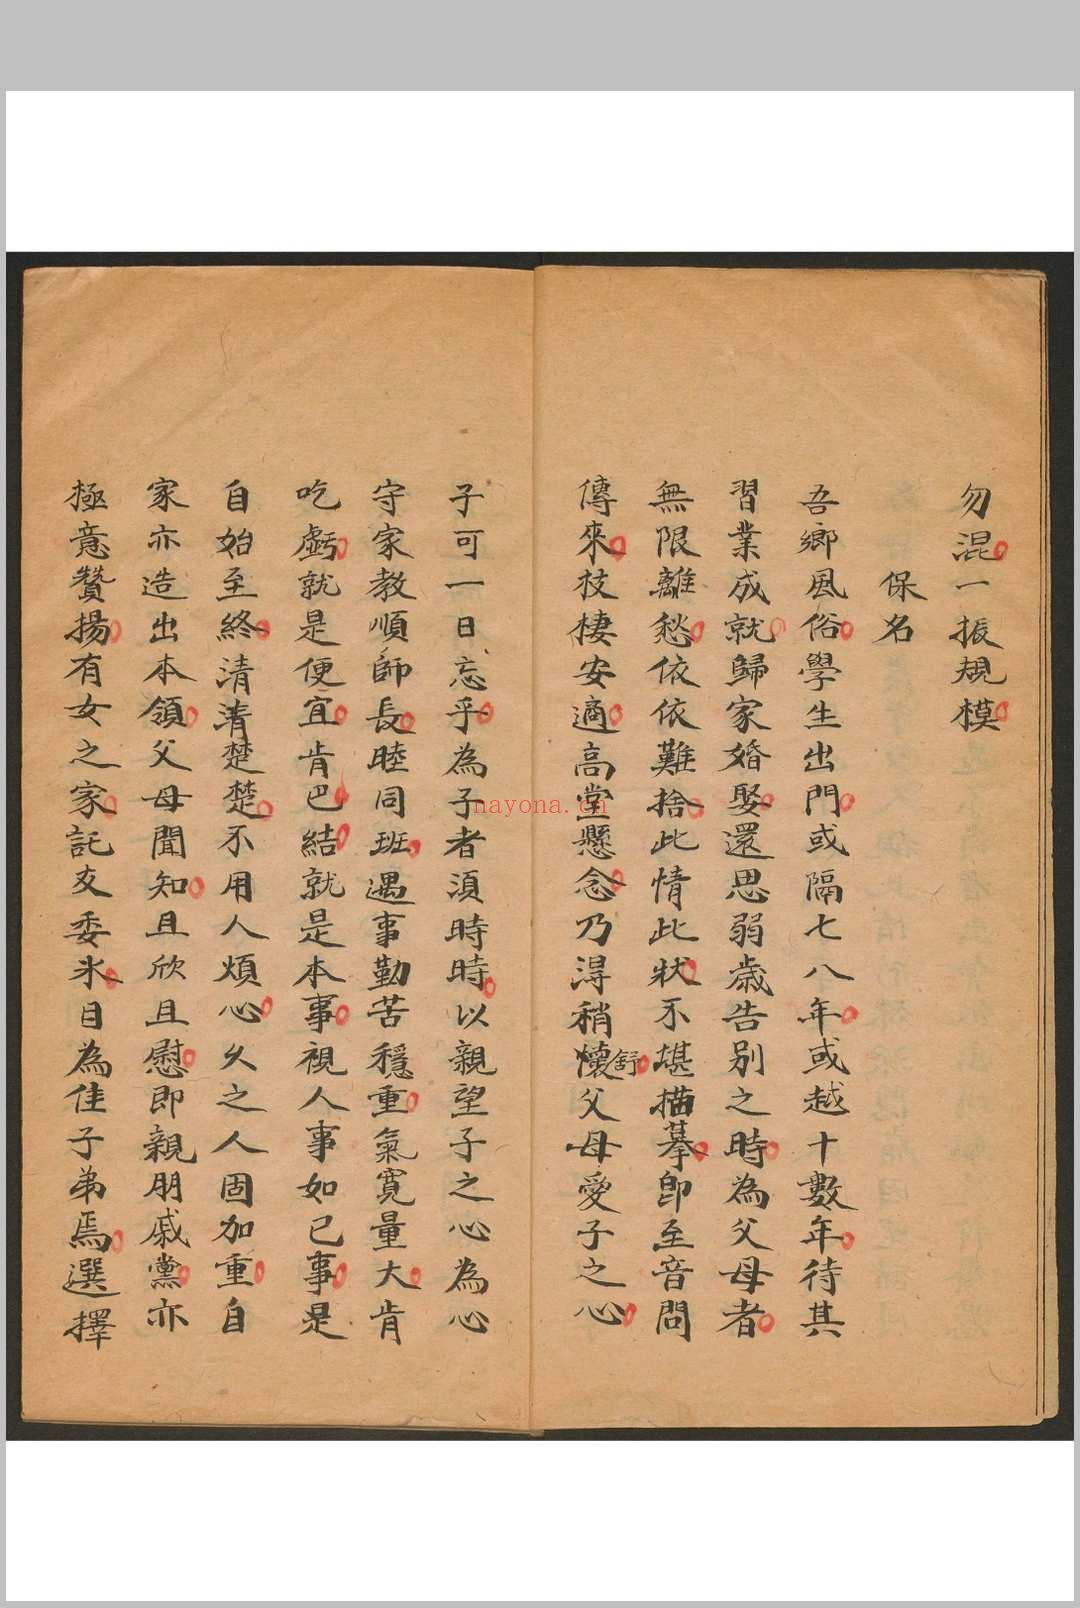 勿混一振規模
保名
吾鄉風俗學生出門或隔七八年或越十數年待其
習業成就歸家婚娶還思弱歲告別之時為父母者
無限離愁依依難捨此情此狀不堪描摹即至音問
傳來枝棲安適高堂懸念乃得稍懷舒父母愛子之心
子可一日忘乎為子者須時時以親望子之心為心
守家教順師長睦同班遇事勤苦穩重氣寬量大肯
吃虧就是便宜肯巴結就是本事視人事如己事是
自始至終清清楚楚不用人煩心久之人固加重自
家亦造出本領父母聞知且欣且慰即親朋戚黨亦
極意贊揚有女之家託友委氷目為佳子弟焉選擇
nayona.cn